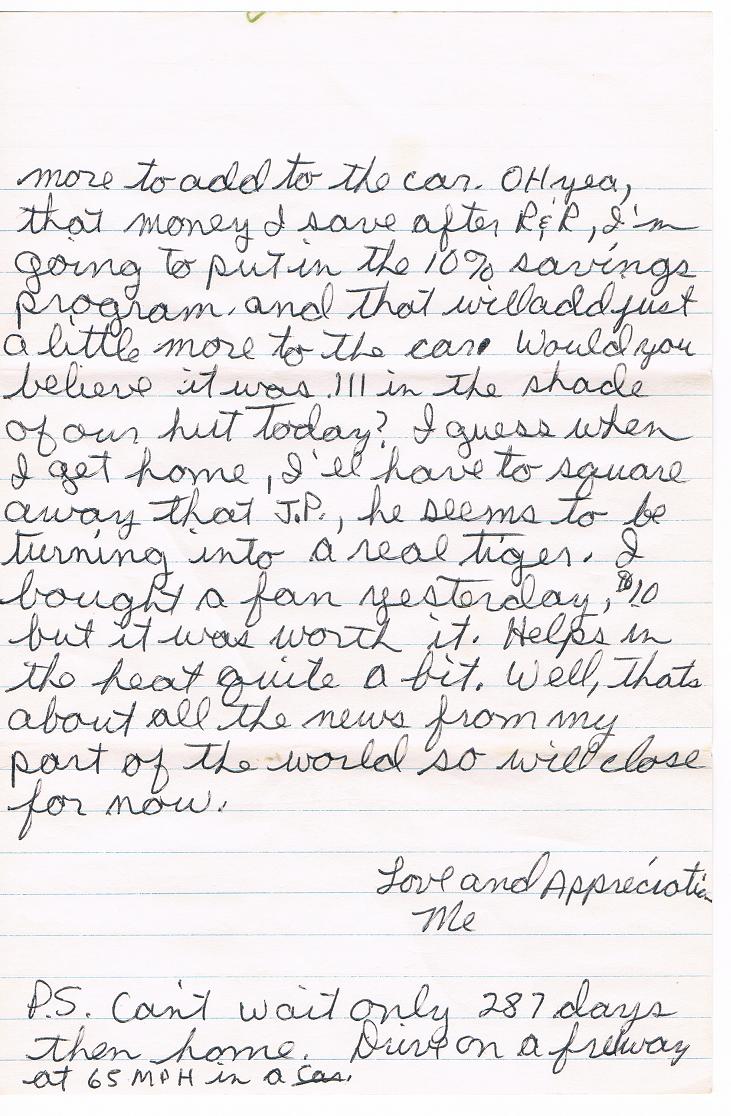 more to add to the car. OH yea,
that money I save after R&R, I'm
going to put in the 10% savings
program. and that will add just
a little more to the car. Would you
believe it was 111 in the shade
of our hut today? I guess when
I get home, I'll have to square
away that J.P., he seems to be
turning into a real tiger. I
bought a fan yesterday, $10
but it was worth it. Helps in
the heat quite a bit. Well, thats
about all the news from my
part of the world so will close
for now.
Love and Appreciation
Me
P.S. Can't wait only 287 days
then home. Drive on a freeway
at 65 MPH in a car.